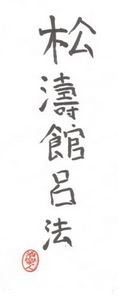 松濤館呂法